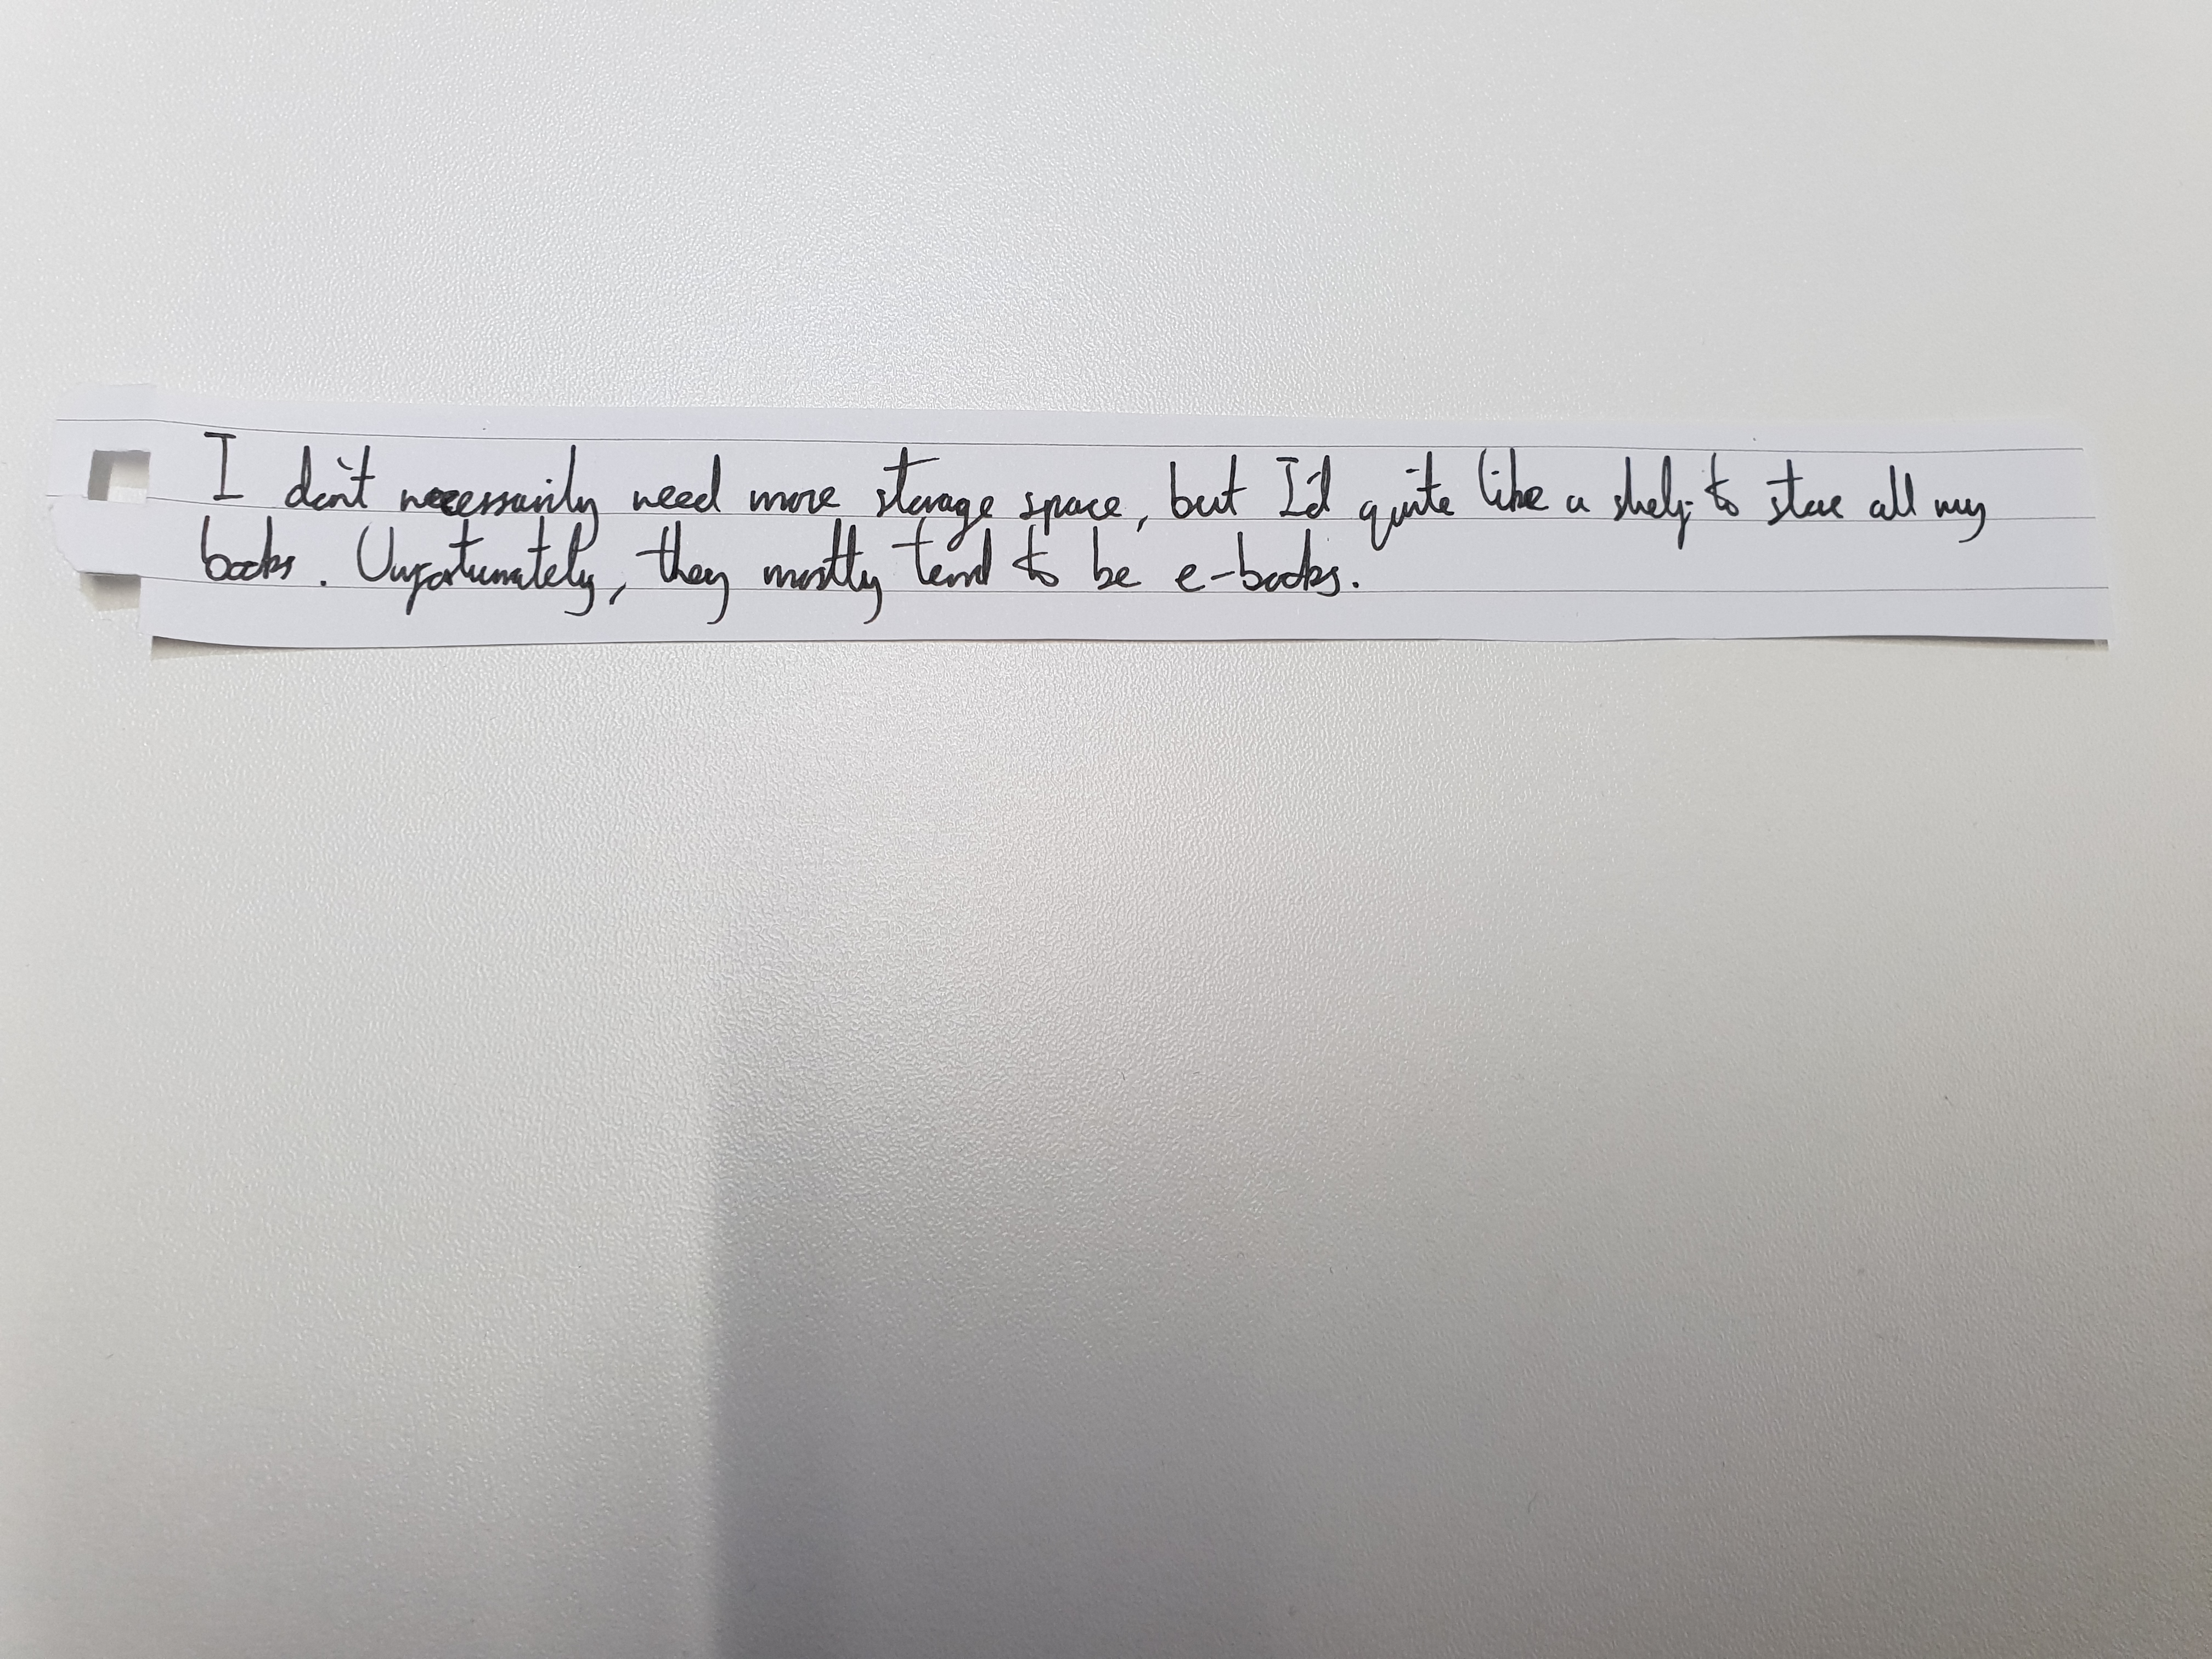 I don't necessarily need more storage space, but I'd quite like a shelf to store all my
books. Unfortunately, they mostly tend to be e-books.